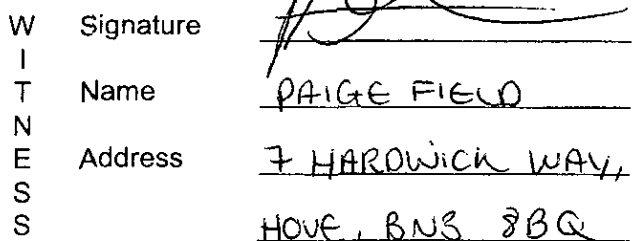 WITNESS
Signature
Name PAIGE FIELD
Address 7 HARDWICK WAY,
HOVE, BN3 8BQ